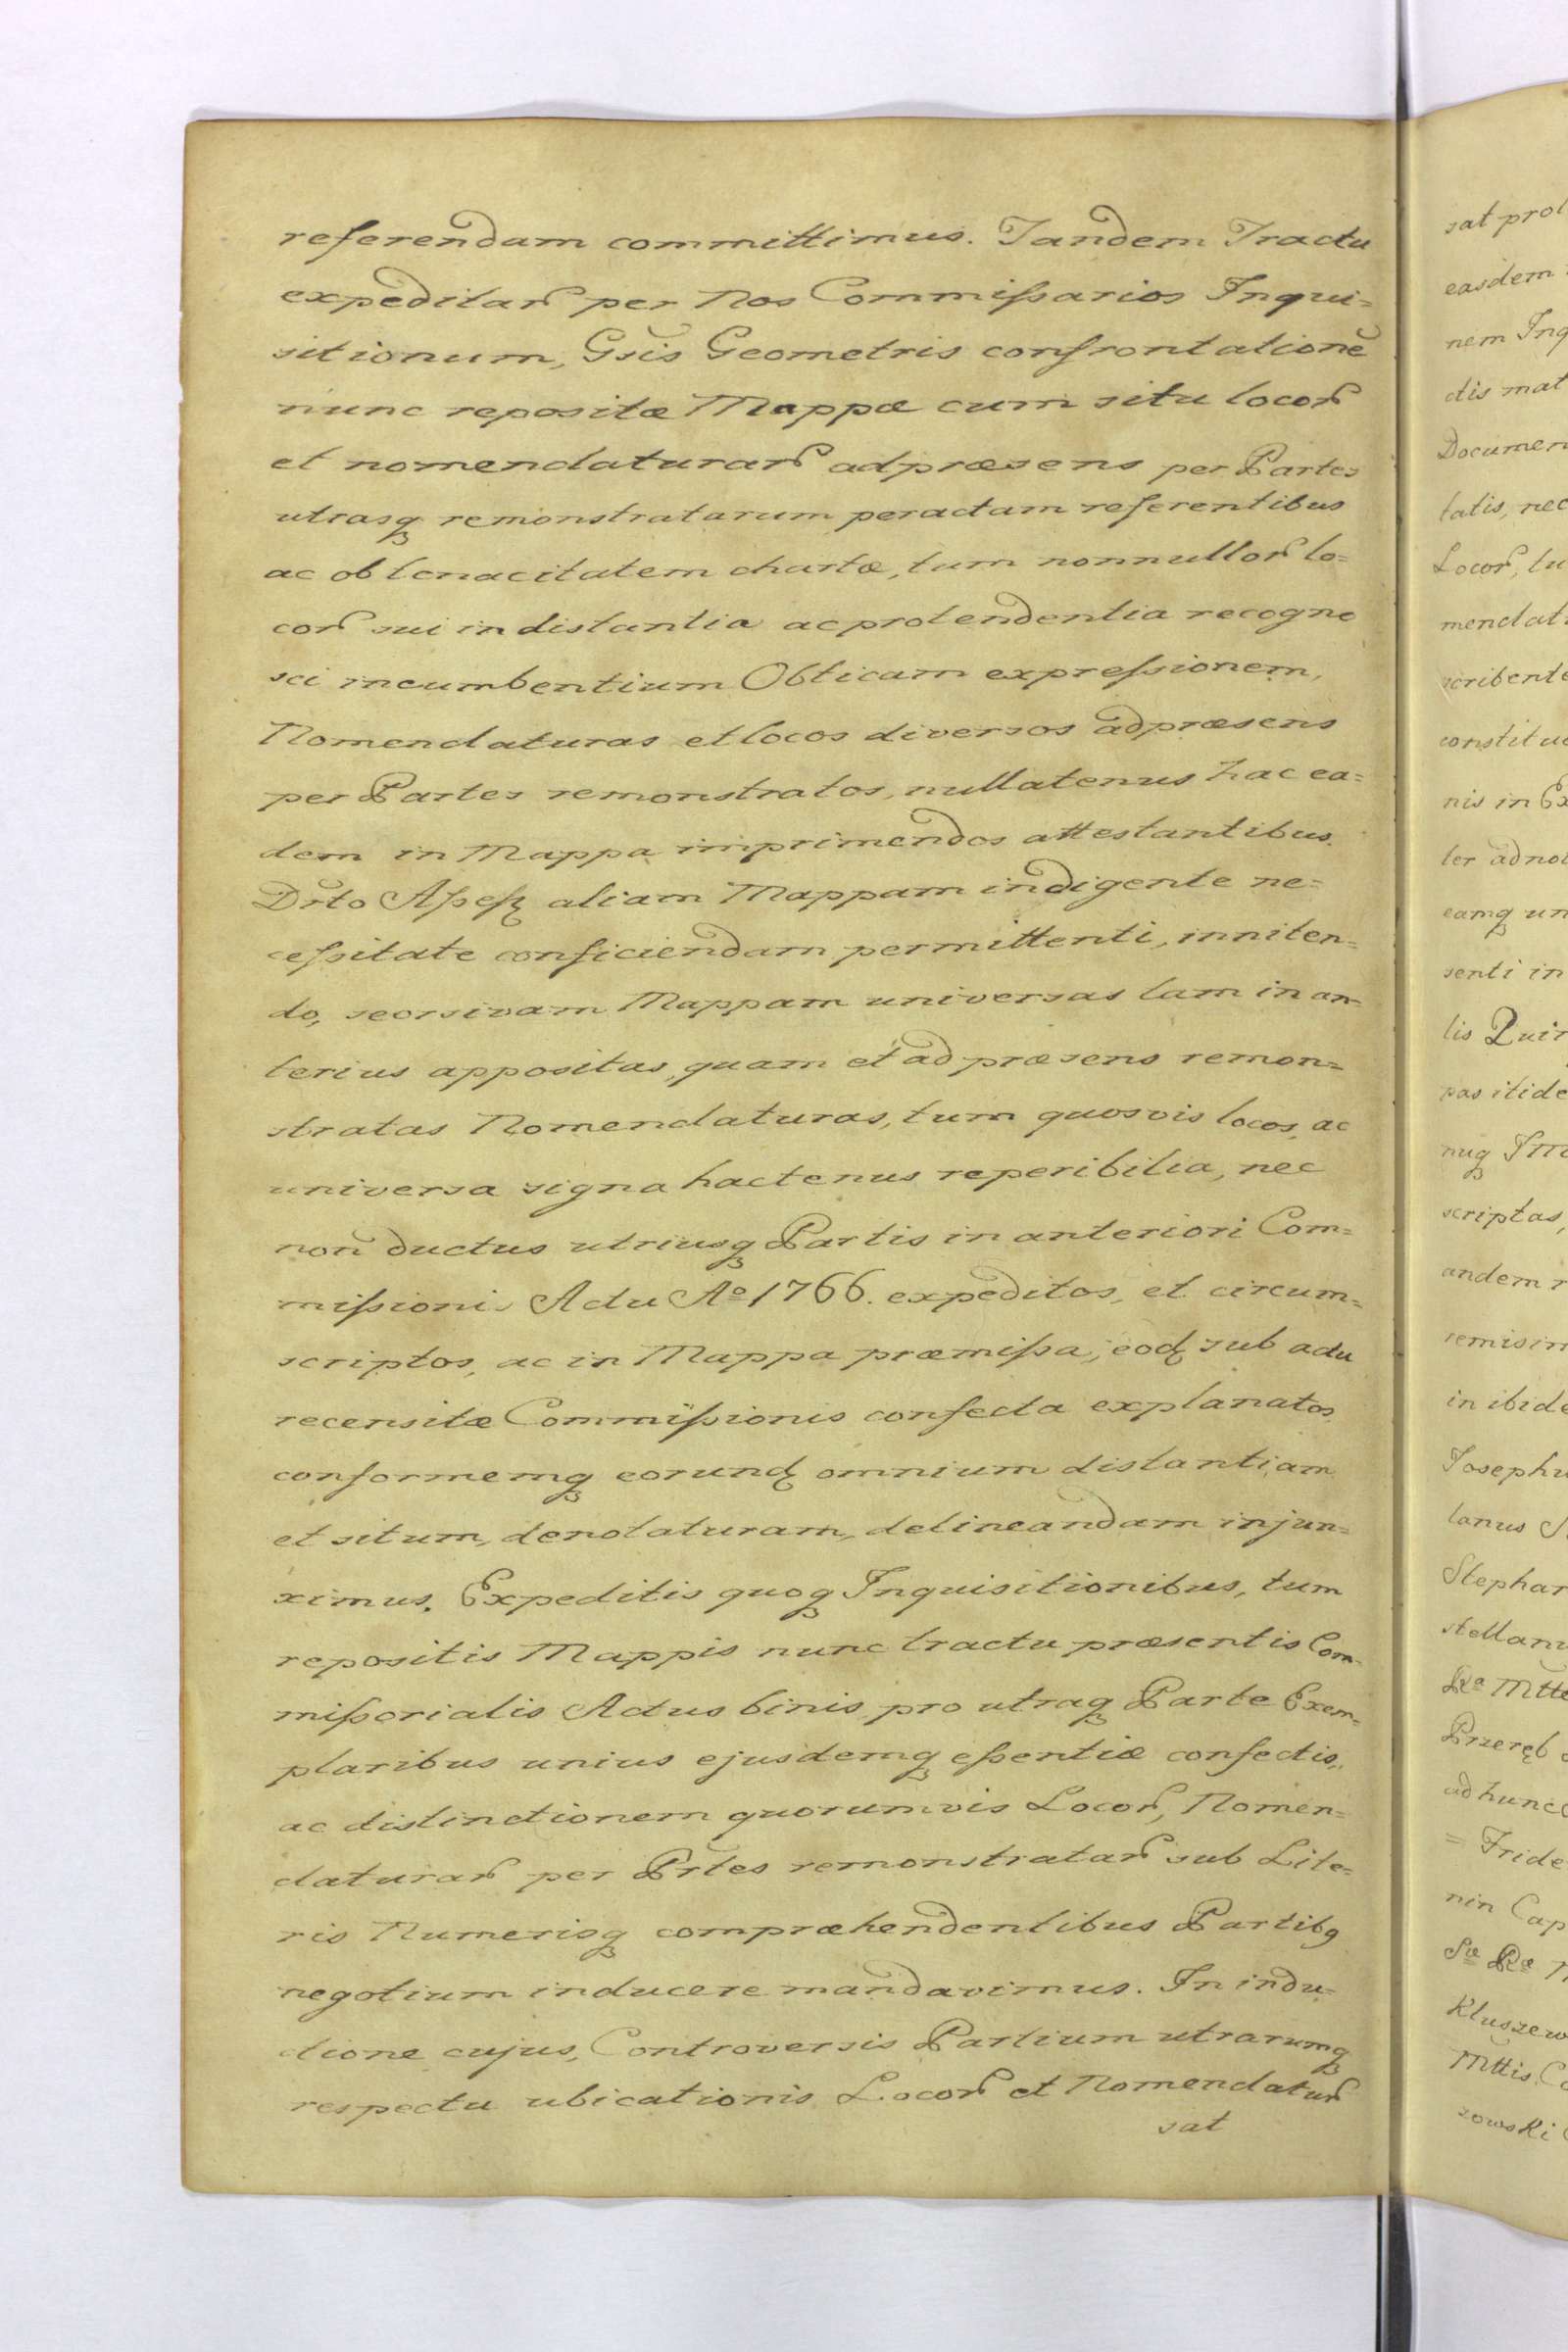 referendam committimus. Tandem Tractu
expeditarꝝ per Nos Commißarios Inqui=
sitionum, Gsis Geometris confrontatione̅
nunc repositæ Mappæ cum situ locorꝝ
et nomenclaturarꝝ adpræsens per Partes
utrasq́ remonstratarum peractam referentibus
ac ob tenacitatem chartæ, tum nonnullorꝝ lo=
corꝝ sui in distantia ac protendentia recogno
sci incumbentium Obticam expreßionem,
Nomenclaturas et locos diversos adpræsens
per Partes remonstratos, nullatenus hac ea=
dem in Mappa imprimendos attestantibus.
Drto Aßeß aliam Mappam indigente ne=
ceßitate conficiendam permittenti, inniten=
do, seorsivam Mappam universas tam in an=
terius appositas, quam et ad præsens remon=
stratas Nomenclaturas, tum quosvis locos, ac
universa signa hactenus reperibilia, nec
non ductus utriusq́ Partis in anteriori Com=
mißionis Actu Aº 1766. expeditos, et circum=
scriptos, ac in Mappa præmißa, eod sub actu
recensitæ Commißionis confecta explanatos
conformemq́ eorund omnium distantiam
et situm, denotaturam, delineandam injun=
ximus. Expeditis quoq́ Inquisitionibus, tum
repositis Mappis nunc tractu præsentis Com=
mißorialis Actus binis pro utraq́ Parte Exem=
plaribus unius ejusdemq́ eßentiæ confectis,
ac distinctionem quorumvis Locorꝝ, Nomen=
claturarꝝ per Prtes remonstratarꝝ sub Lite=
ris Numerisq́ compræhendentibus Partibꝰ
negotium inducere mandavimus. In indu=
ctione cujus, Controversis Partium utrarumq́
respectu ubicationis Locorꝝ et Nomenclaturꝝ
sat
sat prol
easdem
nem Inq
ctis mat
Documen
tatis, nec
Locorꝝ, tu
menclat
scribente
constitu
nis in Ex
ter adno
eamq́ un
senti in
lis Quir
pas itide
nuq́
scriptas,
andem r
remisim
in ibide
Josephu
lanus
Stephan
stellan
Ra Mtte
Przeręb
ad hunc
= Fride
nin Cap
Sæ Ræ
Kluszew
Mttis. C
zowski